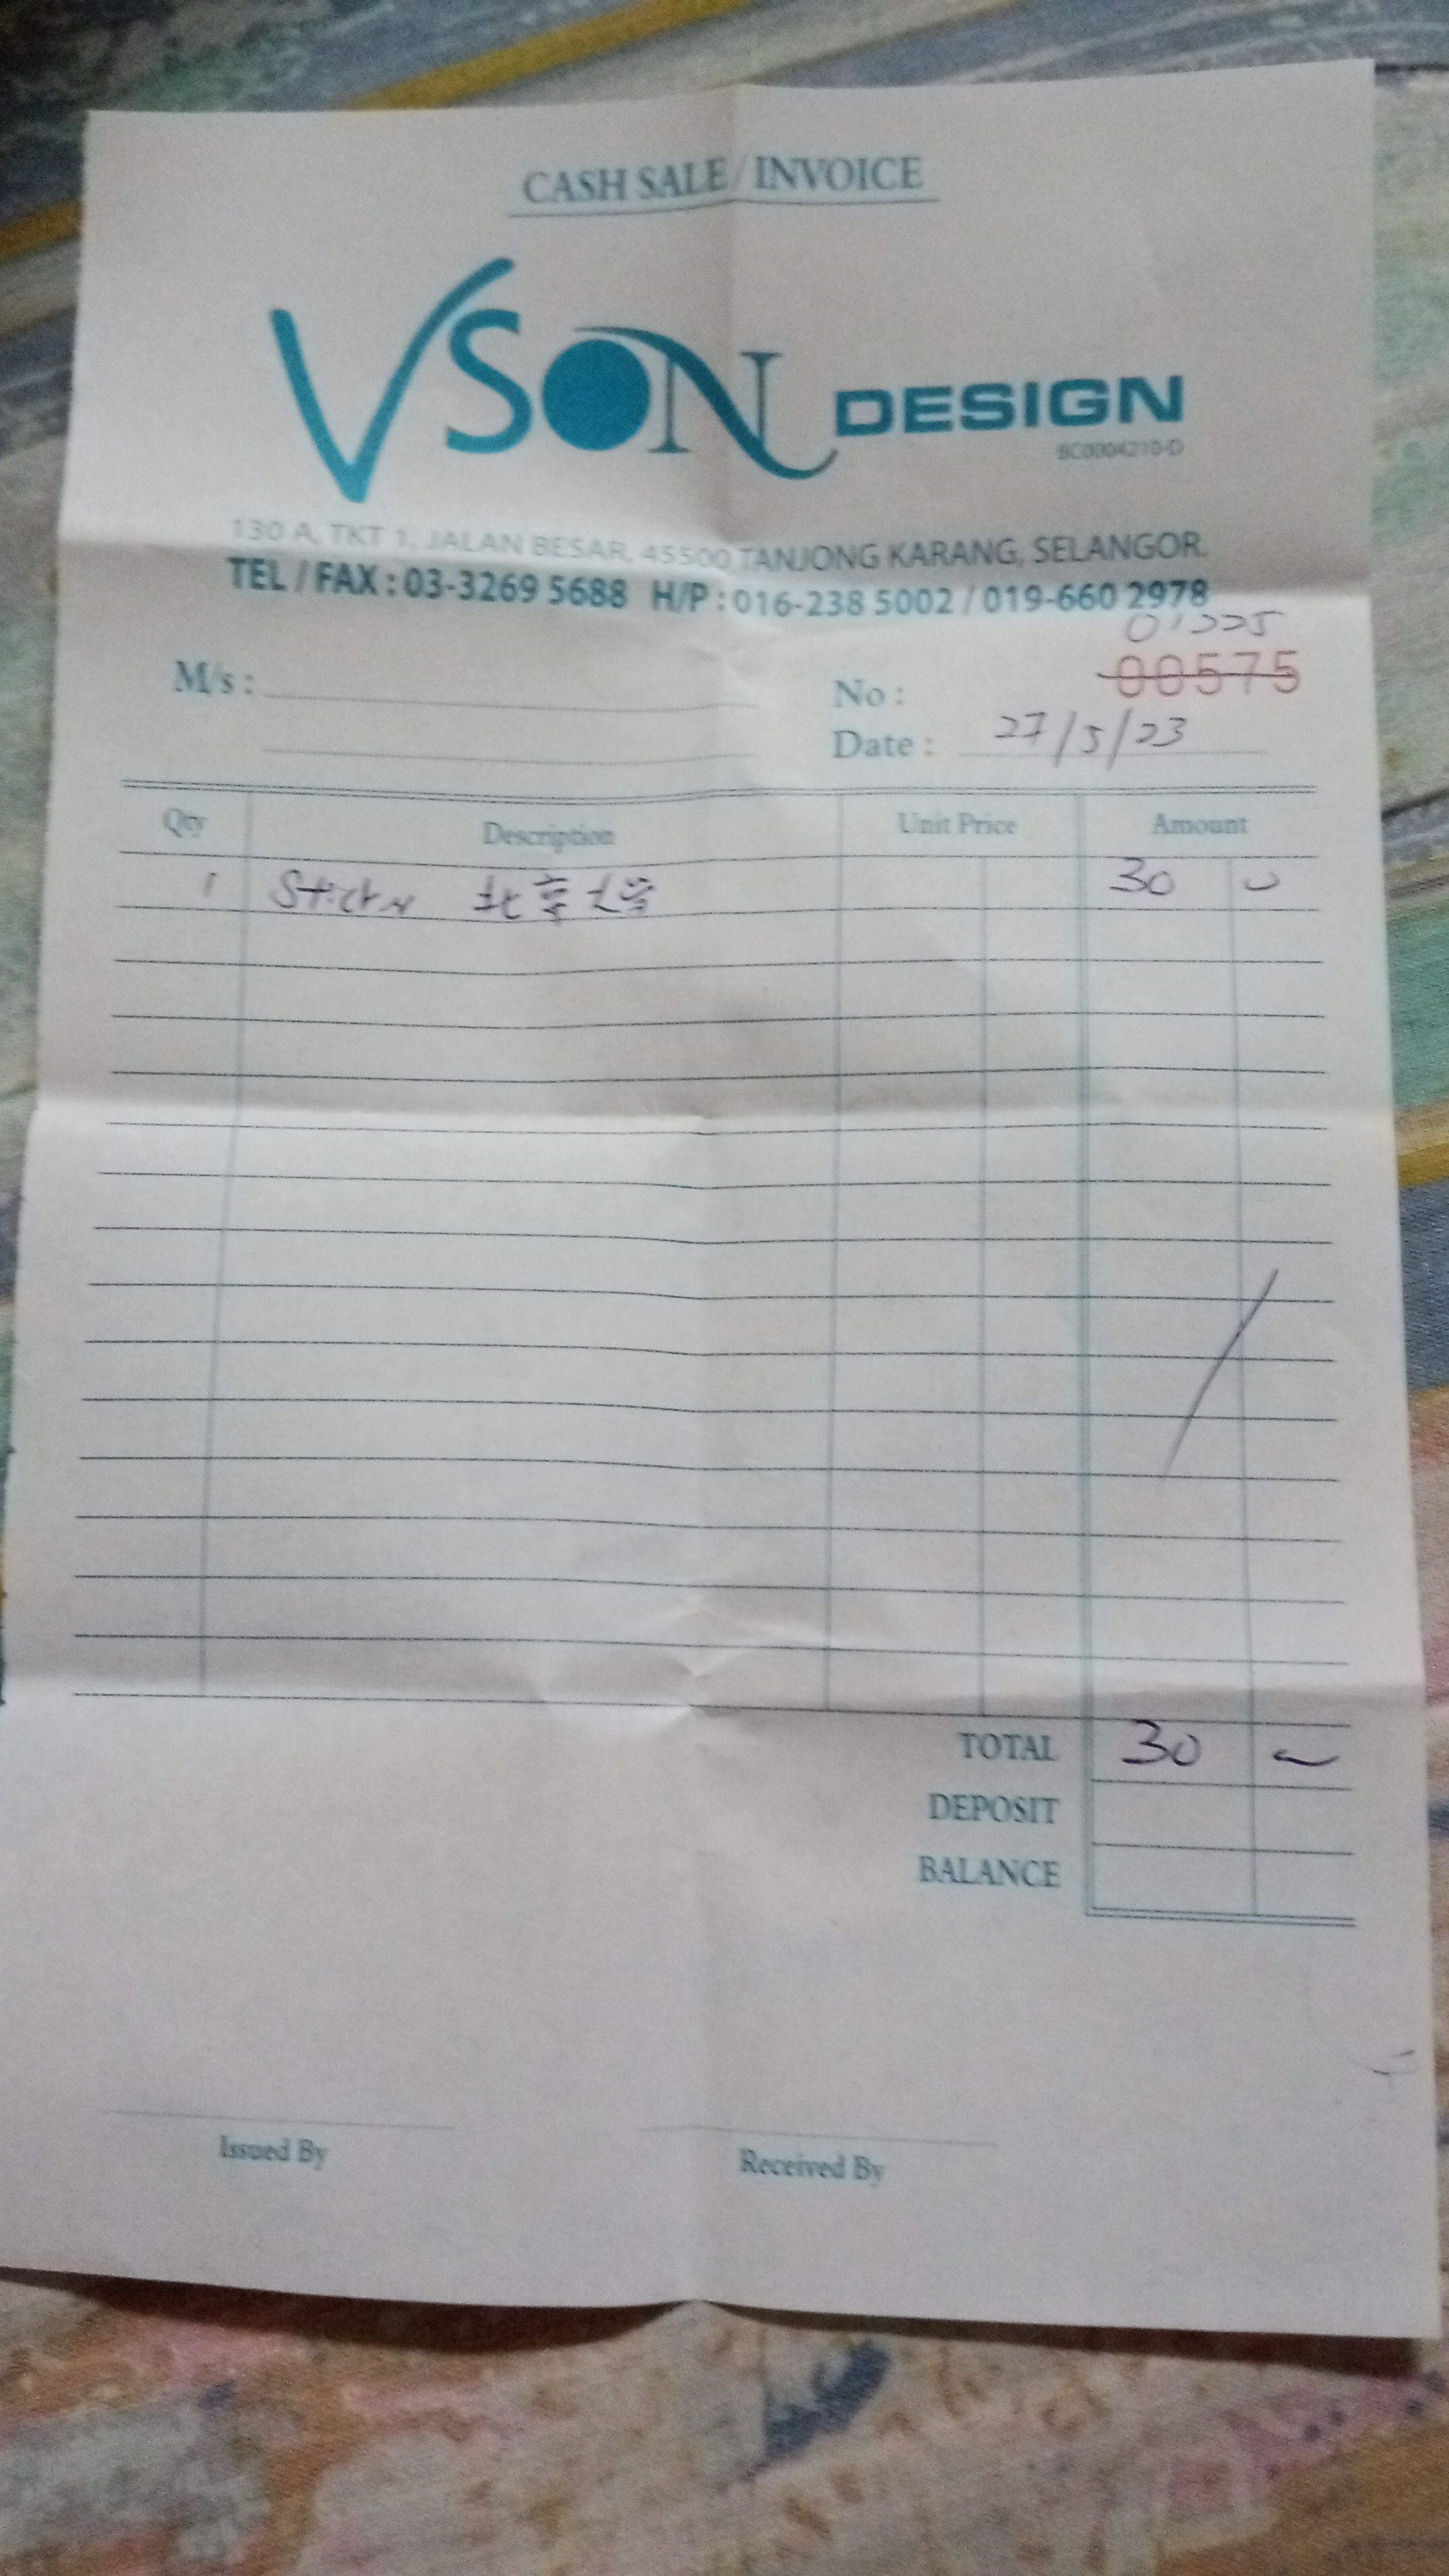 CASH SALE / INVOICE
VSON DESIGN
BC0004210-D
130 A, TKT 1, JALAN BESAR, 45500 TANJONG KARANG, SELANGOR.
TEL / FAX : 03-3269 5688 H/P : 016-238 5002 / 019-660 2978
M/s :
No : 00575
Date : 27/5/23
Qty Description Unit Price Amount
1 Sticker 北京大学 30
TOTAL 30
DEPOSIT
BALANCE
Issued By Received By